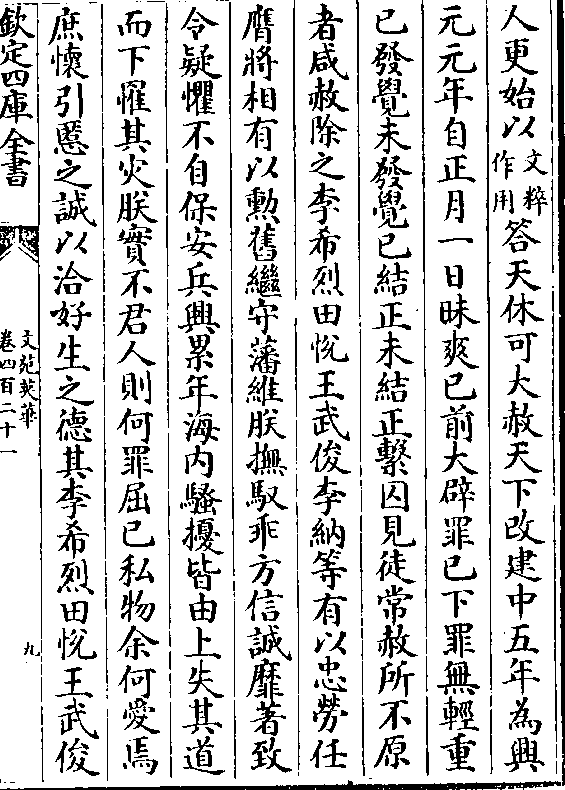 人更始以文粹作用答天休可大赦天下改建中五年為興
元元年自正月一日昧爽已前大辟罪已下罪無輕重
已發覺未發覺已結正未結正繫囚見徒常赦所不原
者咸赦除之李希烈田悅王武俊李納等有以忠勞任
膺將相有以勲舊繼守藩維朕撫馭乖方信誠靡著致
令疑懼不自保安兵興累年海内騷擾皆由上失其道
而下罹其灾朕實不君人則何罪屈已私物余何愛焉
庶懷引慝之誠以洽好生之德其李希烈田悅王武俊
欽定四庫全書
文苑英華
卷四百二十一
九